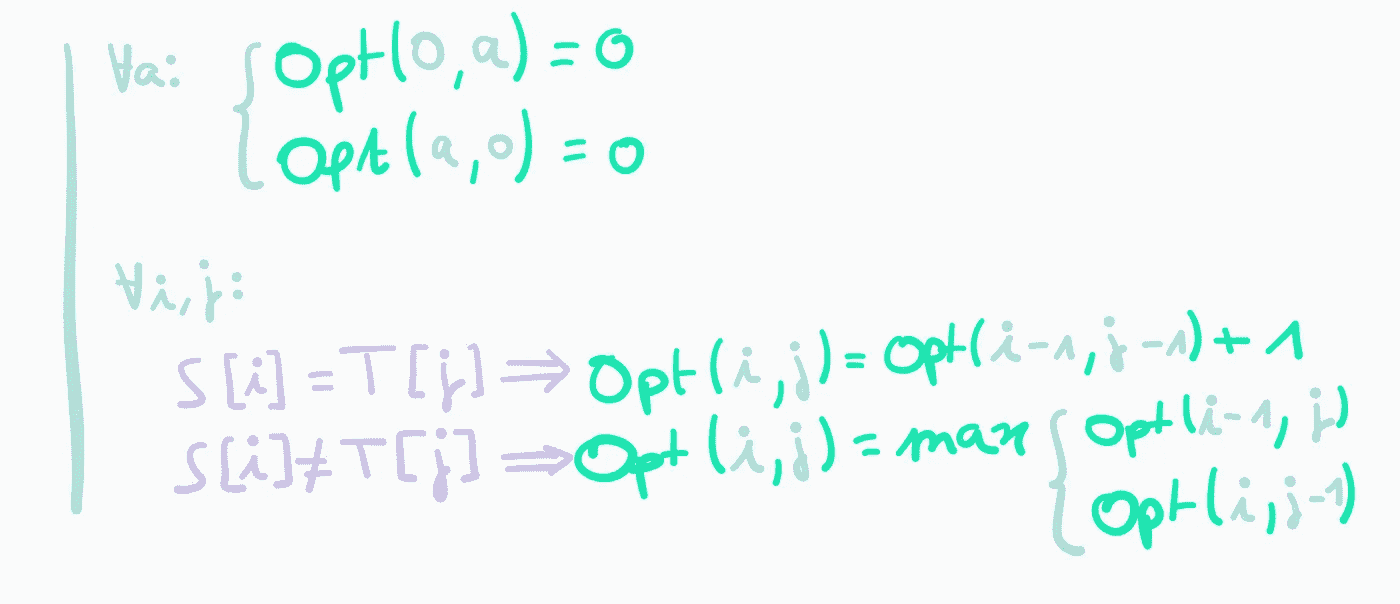 ∀a: { Opt(0, a) = 0
Opt(a, 0) = 0
∀i, j:
S[i] = T[j] ⇒ Opt(i, j) = Opt(i-1, j-1) + 1
S[i] ≠ T[j] ⇒ Opt(i, j) = max { Opt(i-1, j)
Opt(i, j-1)